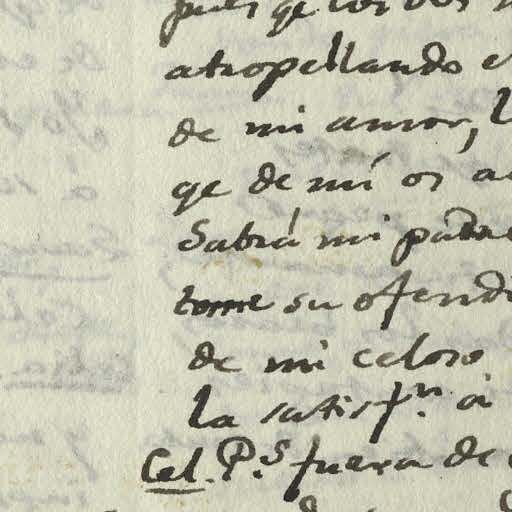 pues qe los dos
atropellando e
de mi amor, l
qe de mí os a
Sabrá mi padre
tome su ofendi
de mi celoso
la satisfn. à
Cel. Ps. fuera de